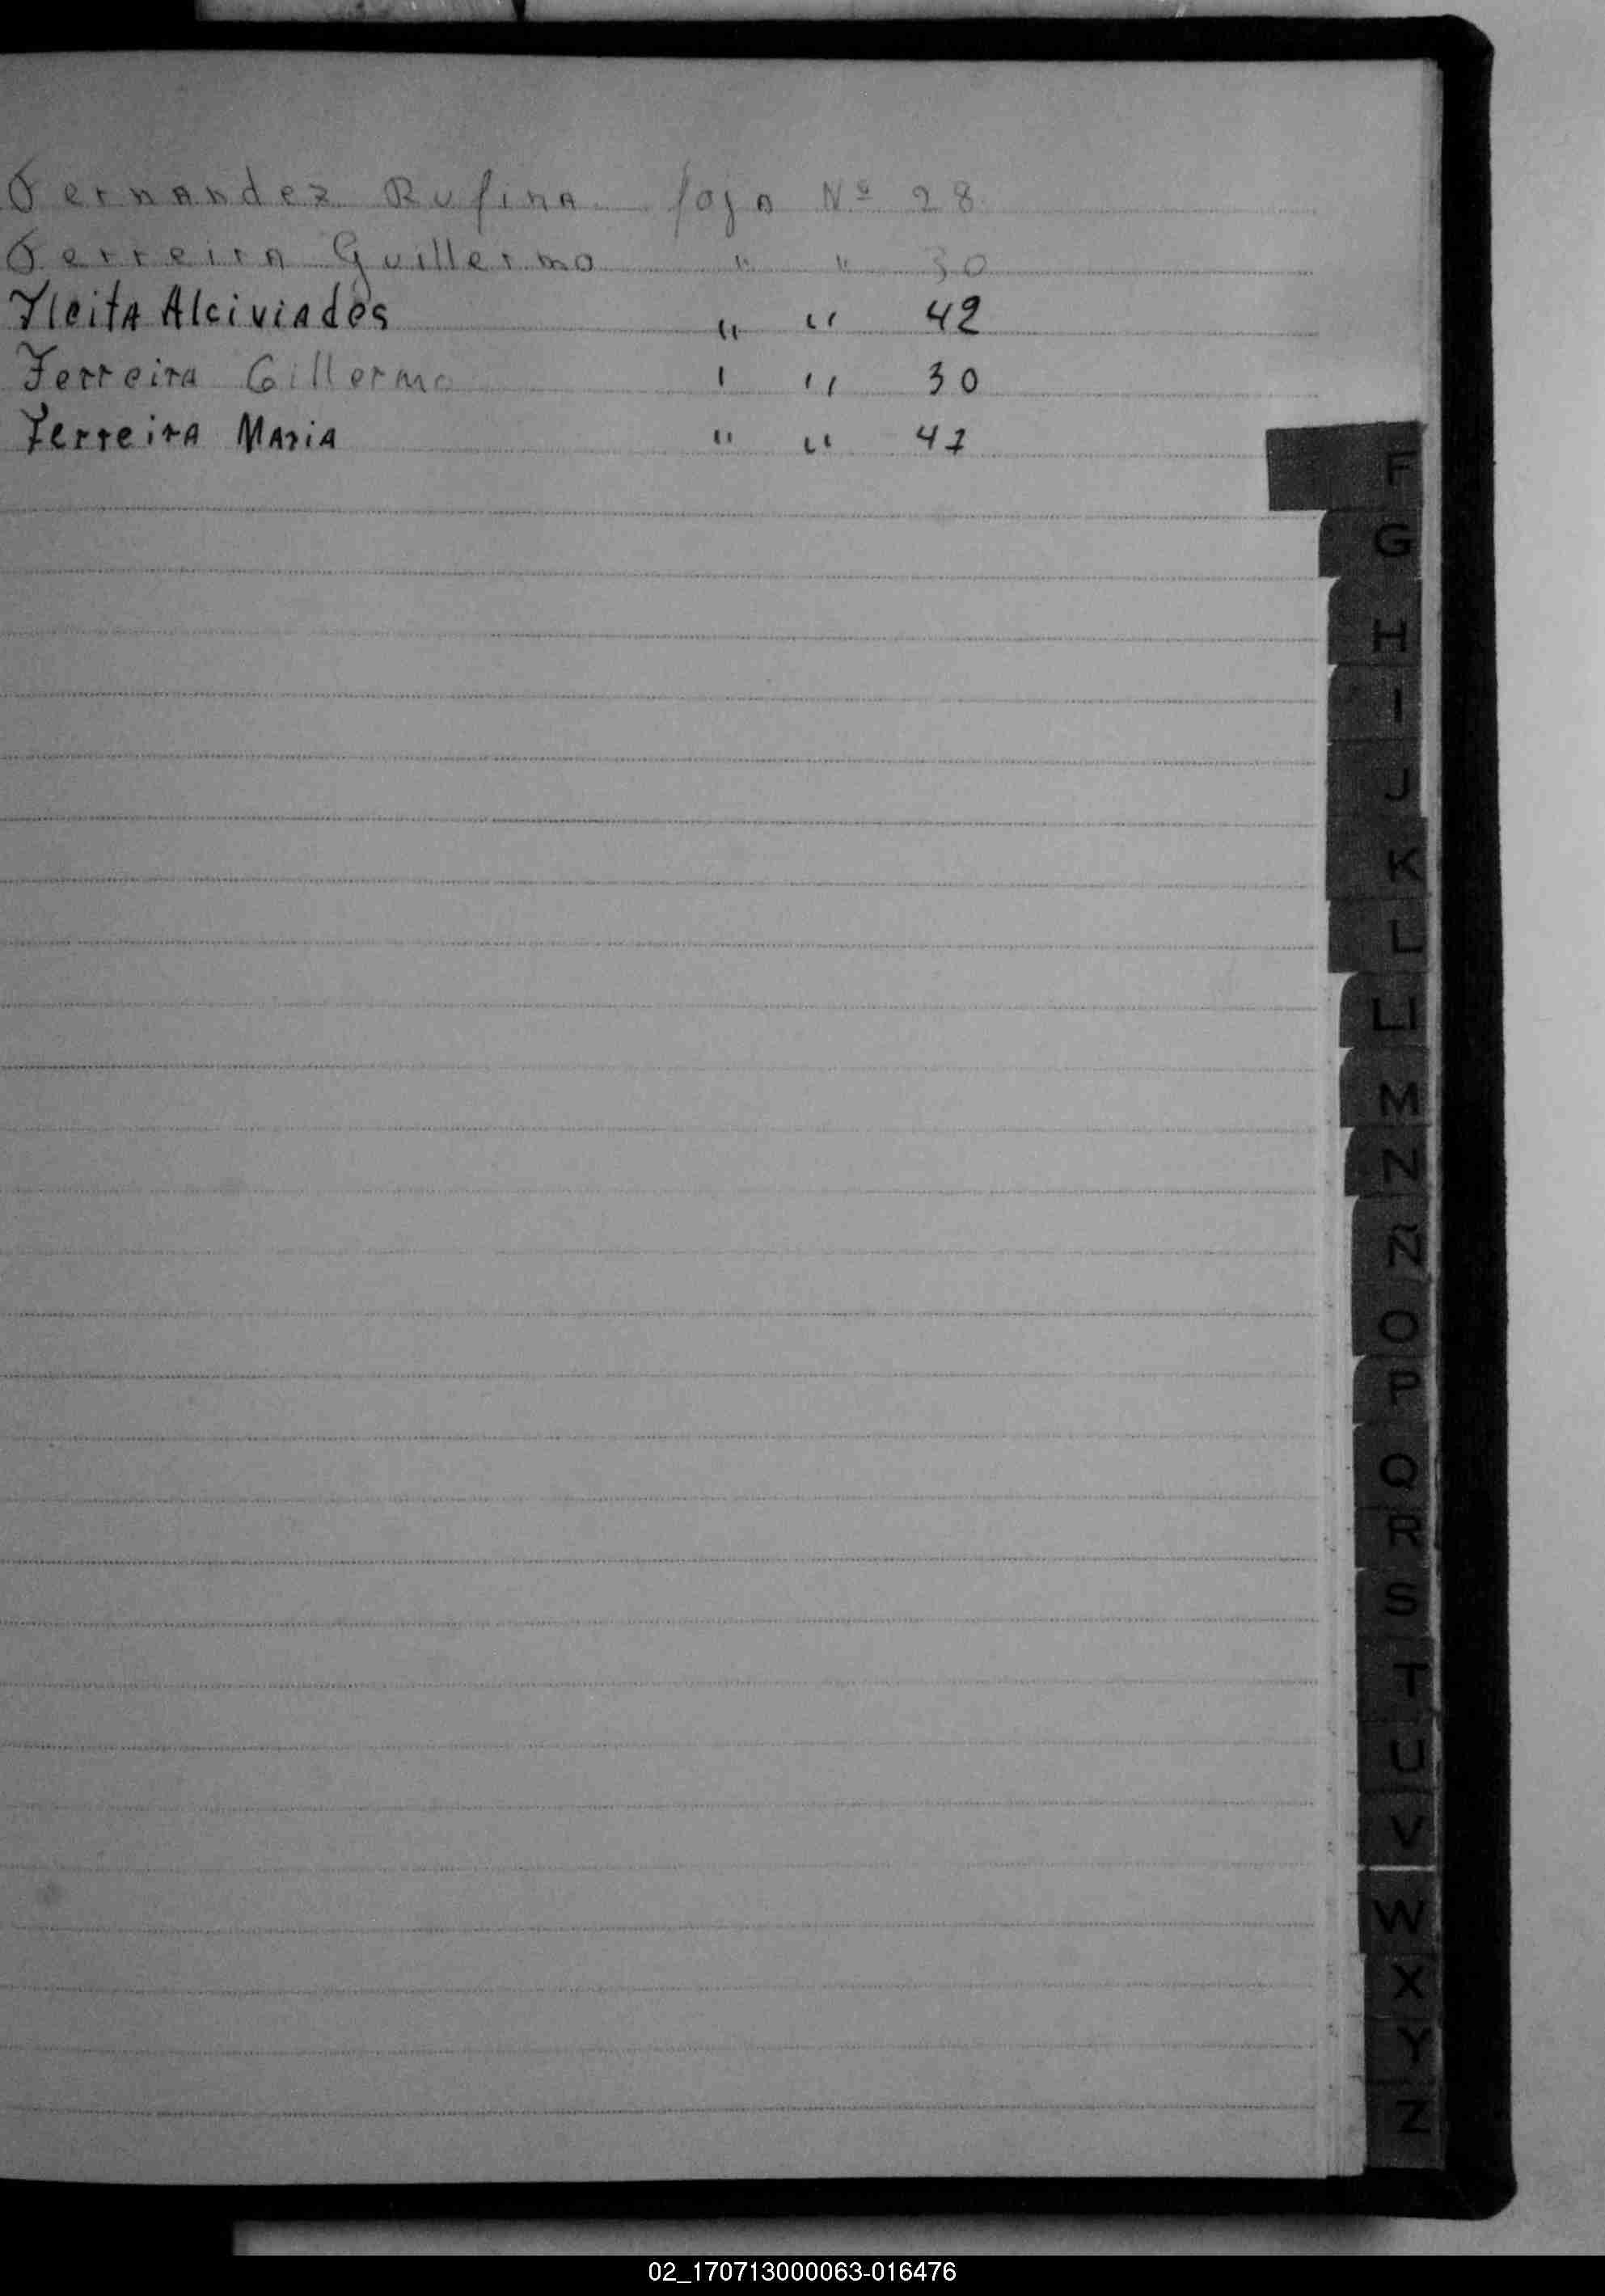 Fernandez Rufina foja Nº 28
Ferreira Guillermo " " 30
Fleita Alciviades " " 42
Ferreira Gillermo " " 30
Ferreira Maria " " 47
F
G
H
I
J
K
L
LL
M
N
Ñ
O
P
Q
R
S
T
U
V
W
X
Y
Z
02_170713000063-016476